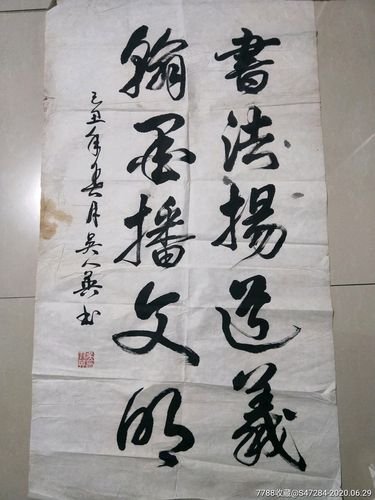 書法揚道義
翰墨播文明
己丑年春月吴人英书
7788收藏@S47284·2020.06.29